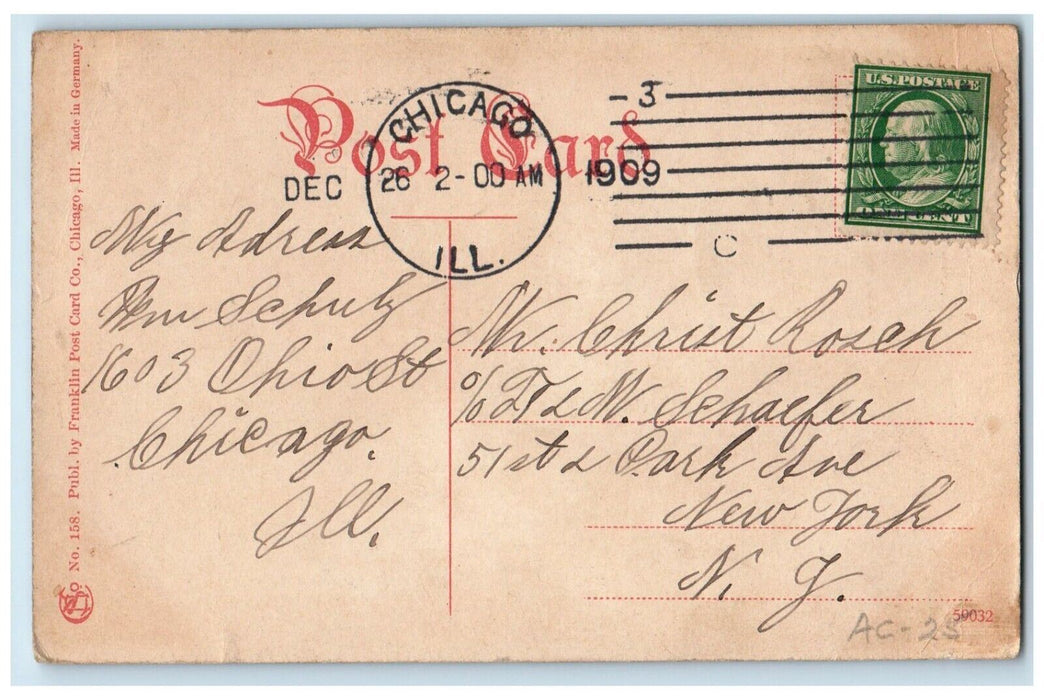 Post Card
CHICAGO
DEC 26 2-00 AM 1909
ILL.
3
C
U.S. POSTAGE
My Adress
Wm Schulz
1603 Ohio St
Chicago.
Ill.
Mr. Christ Rosch
c/o F & M. Schaefer
51st & Park Ave
New York
N. Y.
No. 158. Publ. by Franklin Post Card Co., Chicago, Ill. Made in Germany.
59032
AG-23